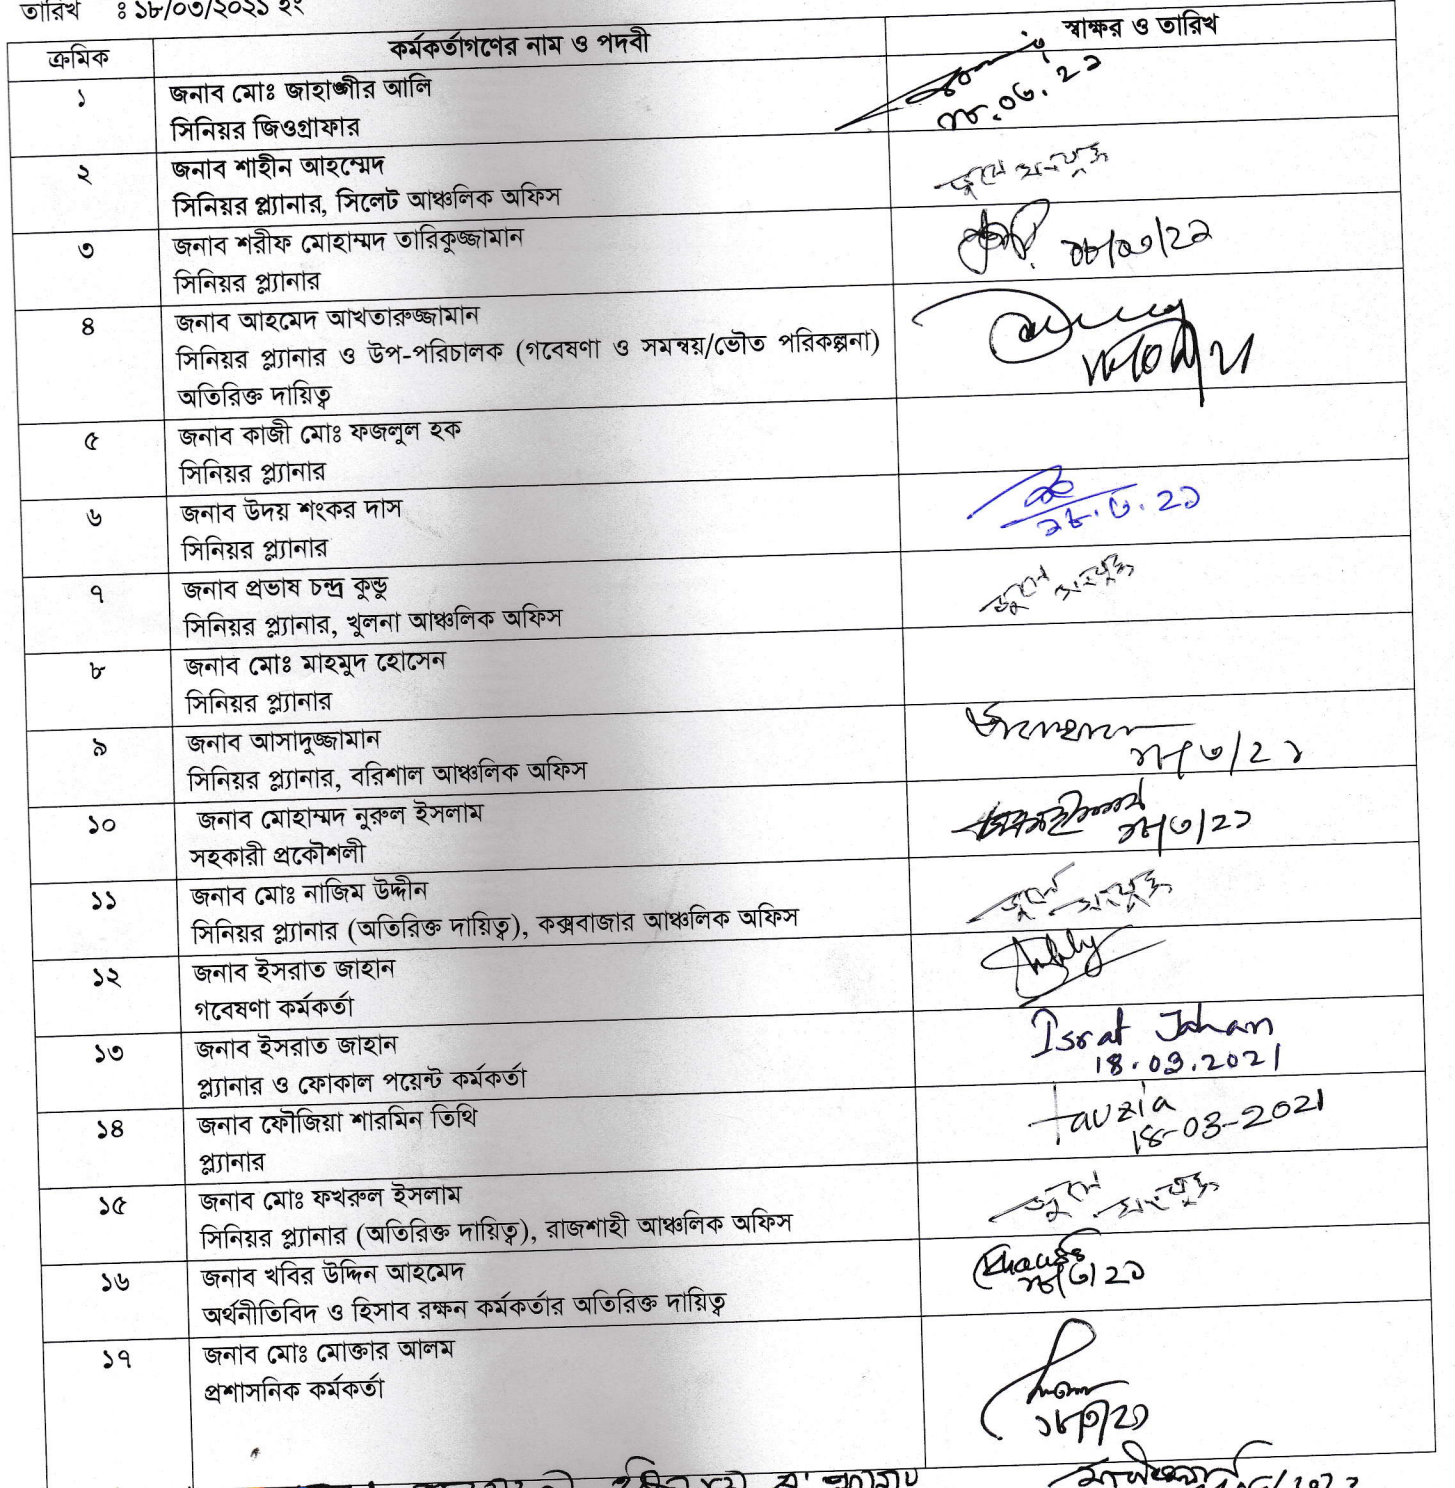 তারিখ : ১৮/০৩/২০২১ ইং
ক্রমিক কর্মকর্তাগণের নাম ও পদবী স্বাক্ষর ও তারিখ
১ জনাব মোঃ জাহাঙ্গীর আলি
সিনিয়র জিওগ্রাফার
১৮.০৩.২১
২ জনাব শাহীন আহম্মেদ
সিনিয়র প্ল্যানার, সিলেট আঞ্চলিক অফিস
জুমে সংযুক্ত
৩ জনাব শরীফ মোহাম্মদ তারিকুজ্জামান
সিনিয়র প্ল্যানার
১৮/০৩/২১
৪ জনাব আহমেদ আখতারুজ্জামান
সিনিয়র প্ল্যানার ও উপ-পরিচালক (গবেষণা ও সমন্বয়/ভৌত পরিকল্পনা)
অতিরিক্ত দায়িত্ব
৫ জনাব কাজী মোঃ ফজলুল হক
সিনিয়র প্ল্যানার
৬ জনাব উদয় শংকর দাস
সিনিয়র প্ল্যানার
১৮.৩.২১
৭ জনাব প্রভাষ চন্দ্র কুন্ডু
সিনিয়র প্ল্যানার, খুলনা আঞ্চলিক অফিস
জুমে সংযুক্ত
৮ জনাব মোঃ মাহমুদ হোসেন
সিনিয়র প্ল্যানার
৯ জনাব আসাদুজ্জামান
সিনিয়র প্ল্যানার, বরিশাল আঞ্চলিক অফিস
১৮/৩/২১
১০ জনাব মোহাম্মদ নুরুল ইসলাম
সহকারী প্রকৌশলী
১৮/৩/২১
১১ জনাব মোঃ নাজিম উদ্দীন
সিনিয়র প্ল্যানার (অতিরিক্ত দায়িত্ব), কক্সবাজার আঞ্চলিক অফিস
জুমে সংযুক্ত
১২ জনাব ইসরাত জাহান
গবেষণা কর্মকর্তা
১৩ জনাব ইসরাত জাহান
প্ল্যানার ও ফোকাল পয়েন্ট কর্মকর্তা
Israt Jahan
18.03.2021
১৪ জনাব ফৌজিয়া শারমিন তিথি
প্ল্যানার
Fauzia
18-03-2021
১৫ জনাব মোঃ ফখরুল ইসলাম
সিনিয়র প্ল্যানার (অতিরিক্ত দায়িত্ব), রাজশাহী আঞ্চলিক অফিস
জুমে সংযুক্ত
১৬ জনাব খবির উদ্দিন আহমেদ
অর্থনীতিবিদ ও হিসাব রক্ষন কর্মকর্তার অতিরিক্ত দায়িত্ব
১৮/৩/২১
১৭ জনাব মোঃ মোক্তার আলম
প্রশাসনিক কর্মকর্তা
১৮/৩/২১